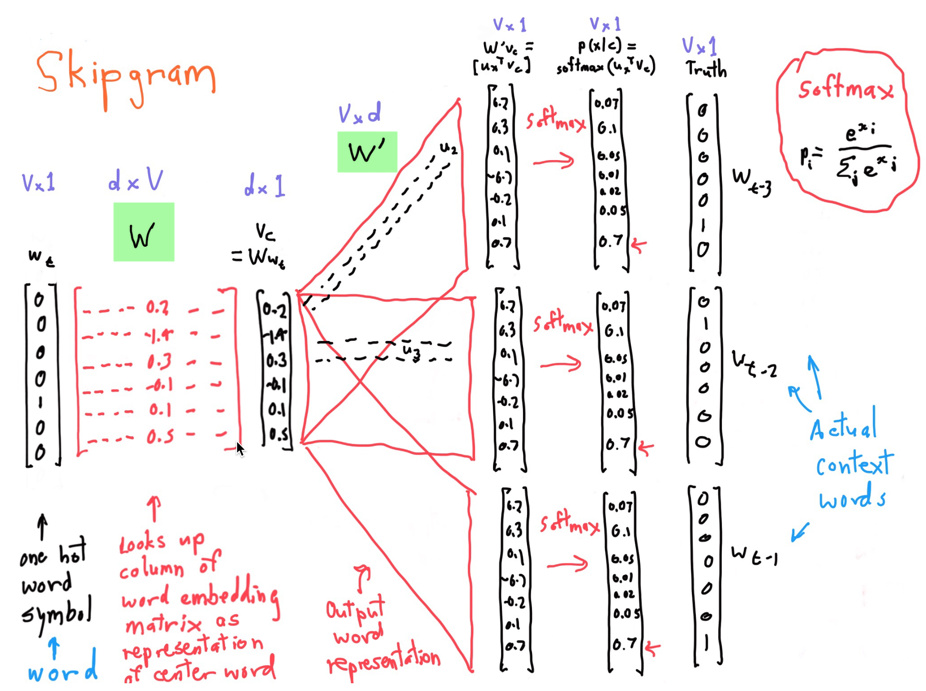 Skipgram
V x 1
d x V
W
d x 1
V x d
W'
w_t
v_c
= Ww_t
0
0
0
0
1
0
0
---- 0.2 - -
---- -1.4 - -
--- 0.3 - -
---- -0.1 - -
--- 0.1 - -
--- 0.5 - -
0.2
-1.4
0.3
-0.1
0.1
0.5
u_2
u_3
V x 1
W'v_c =
[u_x^T v_c]
V x 1
p(x|c) =
softmax(u_x^T v_c)
V x 1
Truth
6.2
6.3
0.1
-6.7
-0.2
0.1
0.7
softmax
0.07
0.1
0.05
0.01
0.02
0.05
0.7
0
0
0
0
0
1
0
w_t-3
6.2
6.3
0.1
-6.7
-0.2
0.1
0.7
softmax
0.07
0.1
0.05
0.01
0.02
0.05
0.7
0
1
0
0
0
0
0
w_t-2
6.2
6.3
0.1
-6.7
-0.2
0.1
0.7
softmax
0.07
0.1
0.05
0.01
0.02
0.05
0.7
0
0
0
0
0
0
1
w_t-1
softmax
p_i = e^x_i / Σ_j e^x_j
Actual
context
words
one hot
word
symbol
word
Looks up
column of
word embedding
matrix as
representation
of center word
Output
word
representation